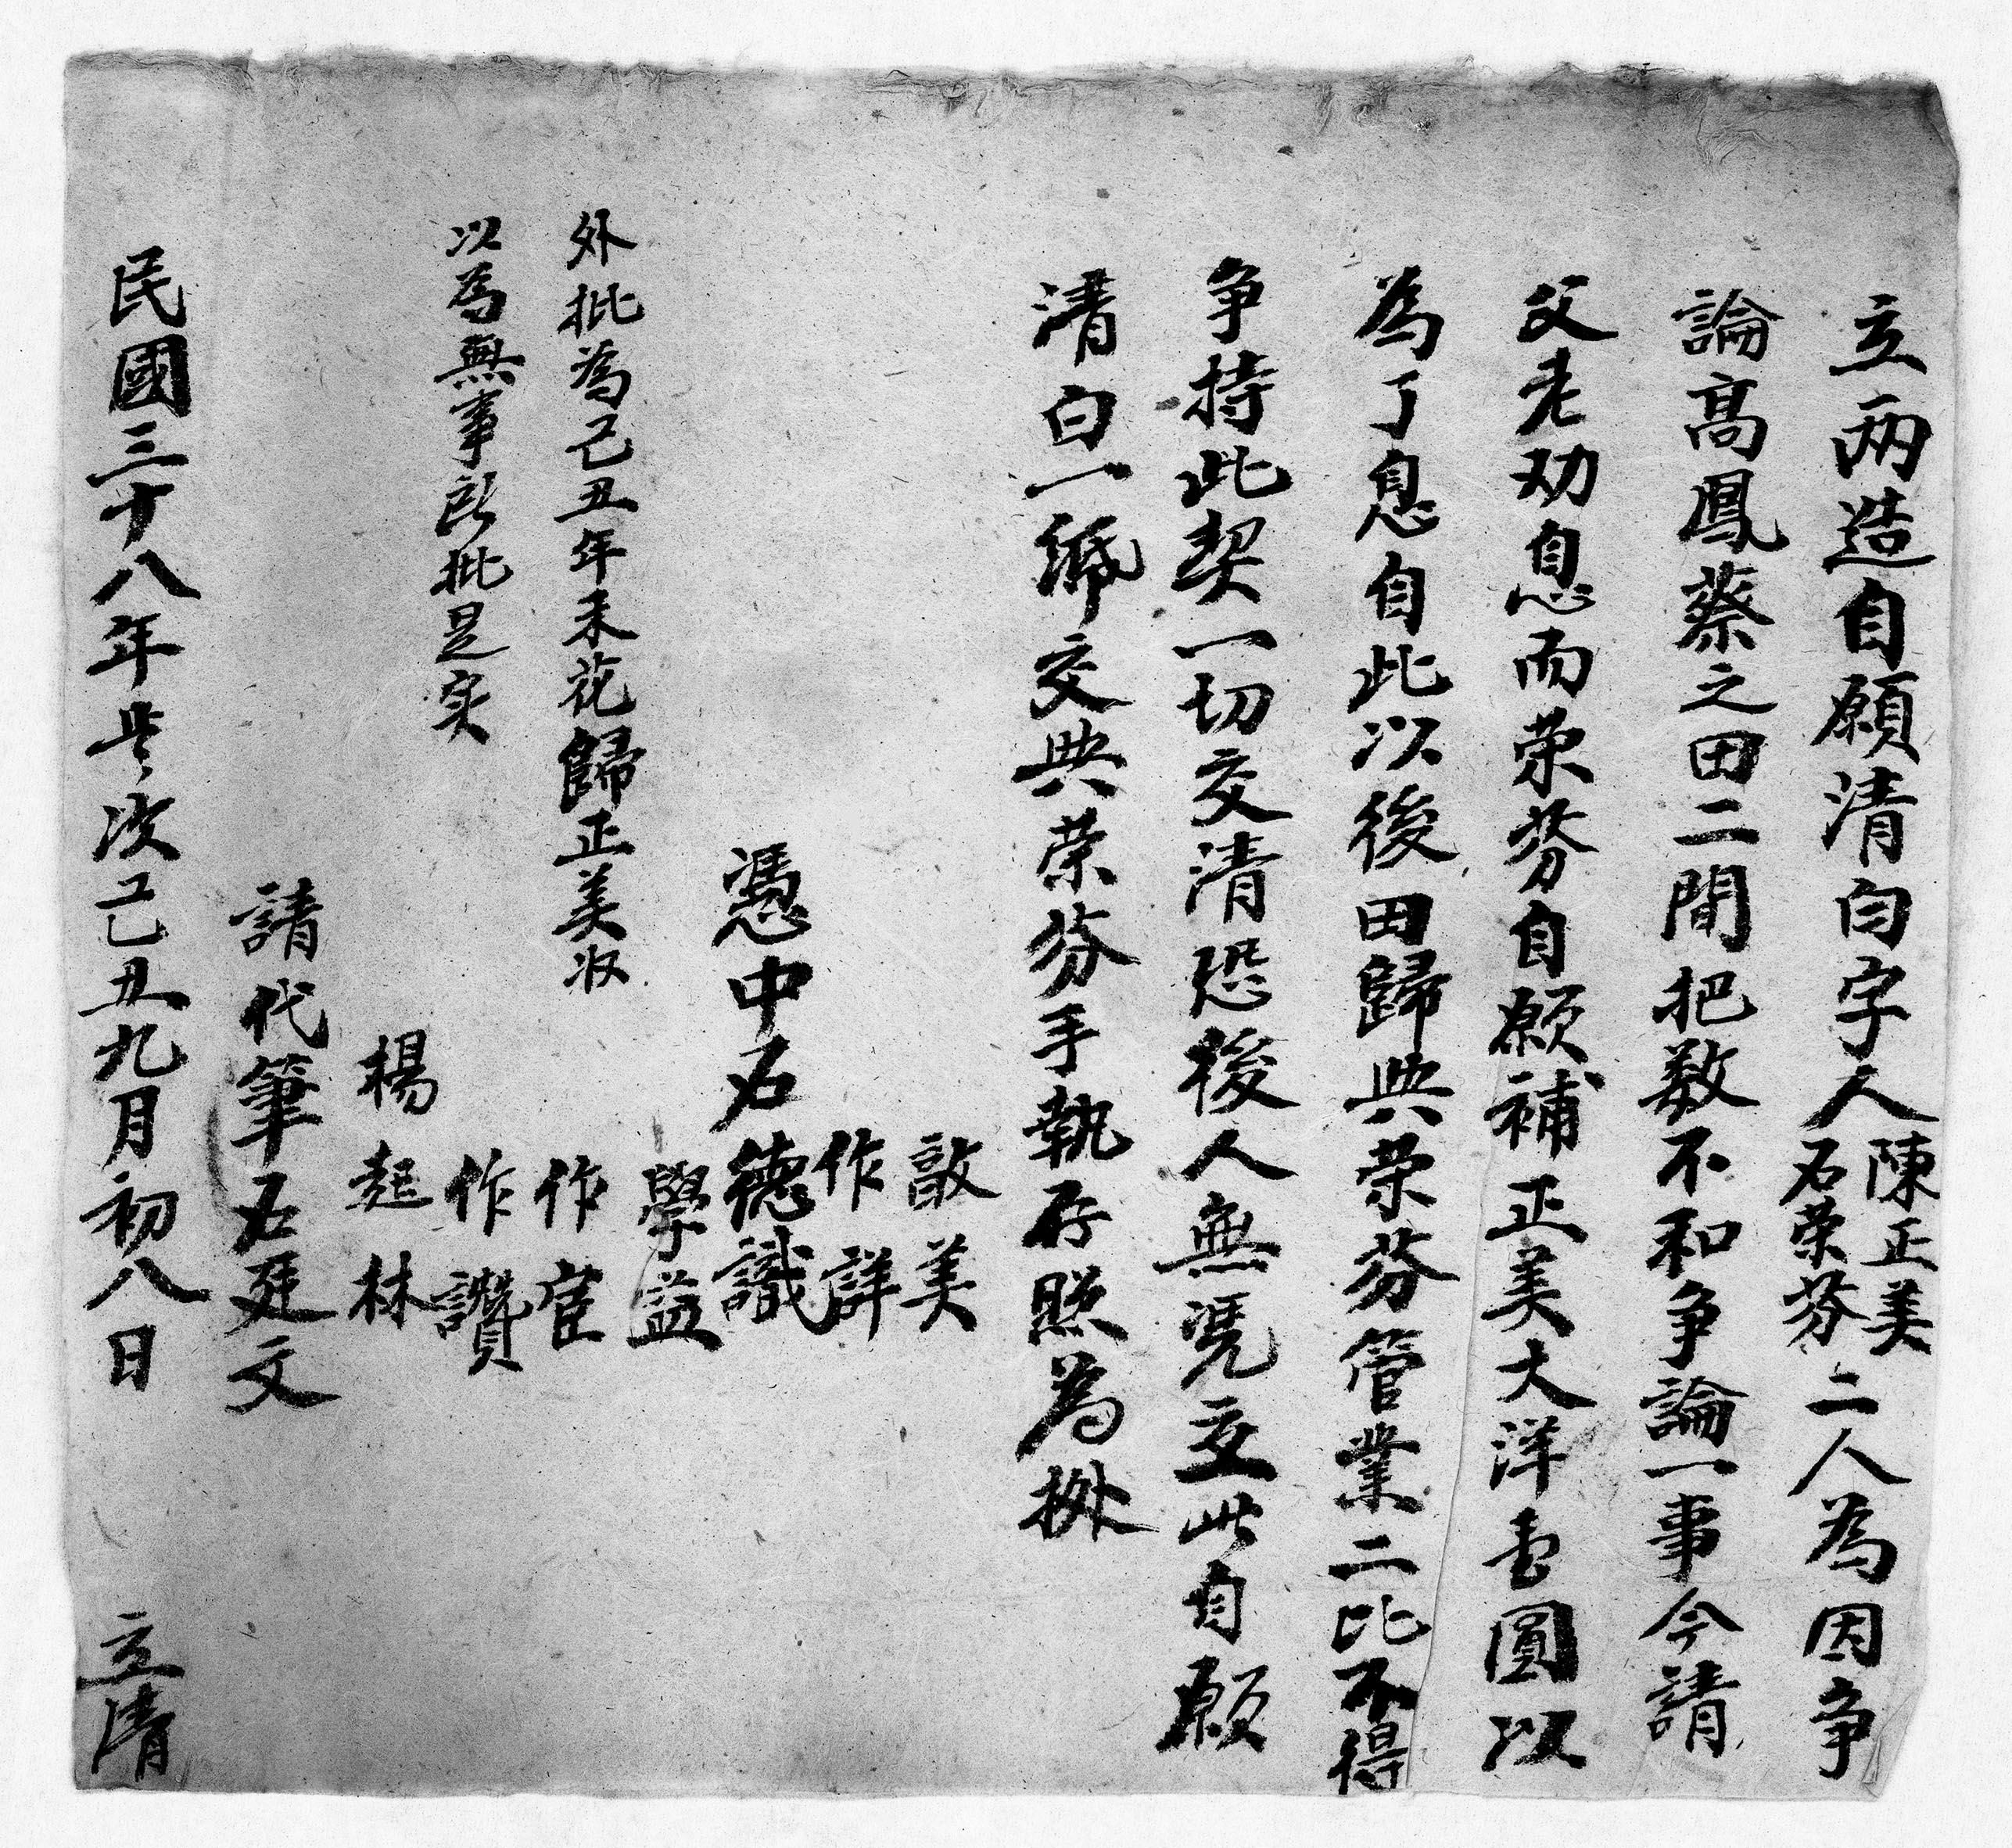 立两造自願清白字人陳正美石荣芬二人為因争
論高鳳蔡之田二間把数不和争論一事今請
父老劝息而荣芬自愿補正美大洋壹圓以
為了息自此以後田歸與荣芬管業二比不得
争持此契一切交清恐後人無凭立此自愿
清白一紙交與荣芬手執存照為據
敔美
作詳
憑中石德識
學益
外批為己丑年禾花歸正美收
作宦
以為無事所批是实
作讚
楊起林
請代筆石廷文
民國三十八年歲次己丑九月初八日 立清